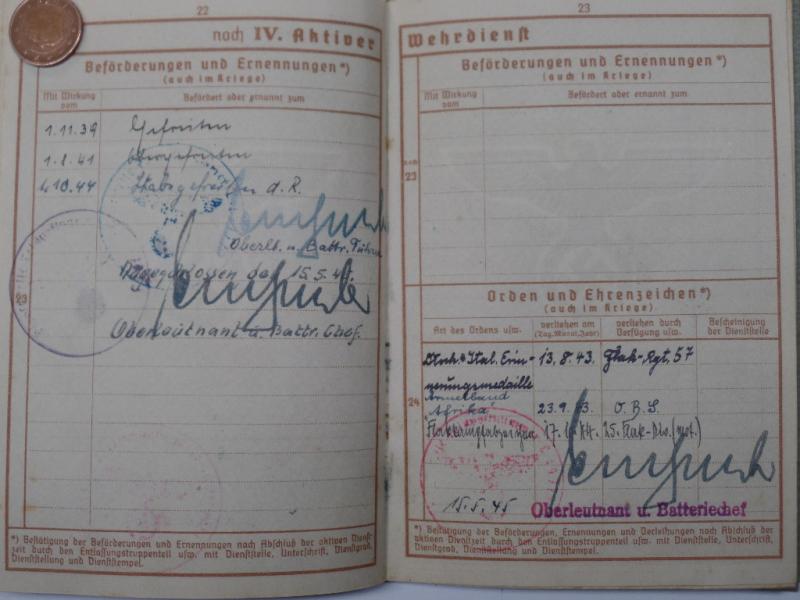 22
noch IV. Aktiver
Beförderungen und Ernennungen*)
(auch im Kriege)
Mit Wirkung vom
Befördert oder ernannt zum
1.11.39 Gefreiten
1.1.41 Obergefreiten
1.10.44 Stabsgefreiten d.R.
Oberlt. u. Battr. Führer
15.5.45
23
Oberleutnant u. Battr. Chef.
*) Bestätigung der Beförderungen und Ernennungen nach Abschluß der aktiven Dienst-
zeit durch den Entlassungstruppenteil usw. mit Dienststelle, Unterschrift, Dienstgrad,
Dienststellung und Dienststempel.
23
Wehrdienst
Beförderungen und Ernennungen*)
(auch im Kriege)
Mit Wirkung vom
Befördert oder ernannt zum
noch
23
Orden und Ehrenzeichen*)
(auch im Kriege)
Art des Ordens usw.
verliehen am
(Tag, Monat, Jahr)
verliehen durch
Verfügung usw.
Bescheinigung
der Dienststelle
Dtsch. Ital. Erin- 13.8.43. Flak-Rgt. 57
nerungsmedaille
Armelband
"Afrika" 23.9.43 O.B.S.
Flakkampfabzeichen 25. Flak-Div. (mot.)
24
15.5.45
Oberleutnant u. Batteriechef
*) Bestätigung der Beförderungen, Ernennungen und Verleihungen nach Abschluß der
aktiven Dienstzeit durch den Entlassungstruppenteil usw. mit Dienststelle, Unterschrift,
Dienstgrad, Dienststellung und Dienststempel.